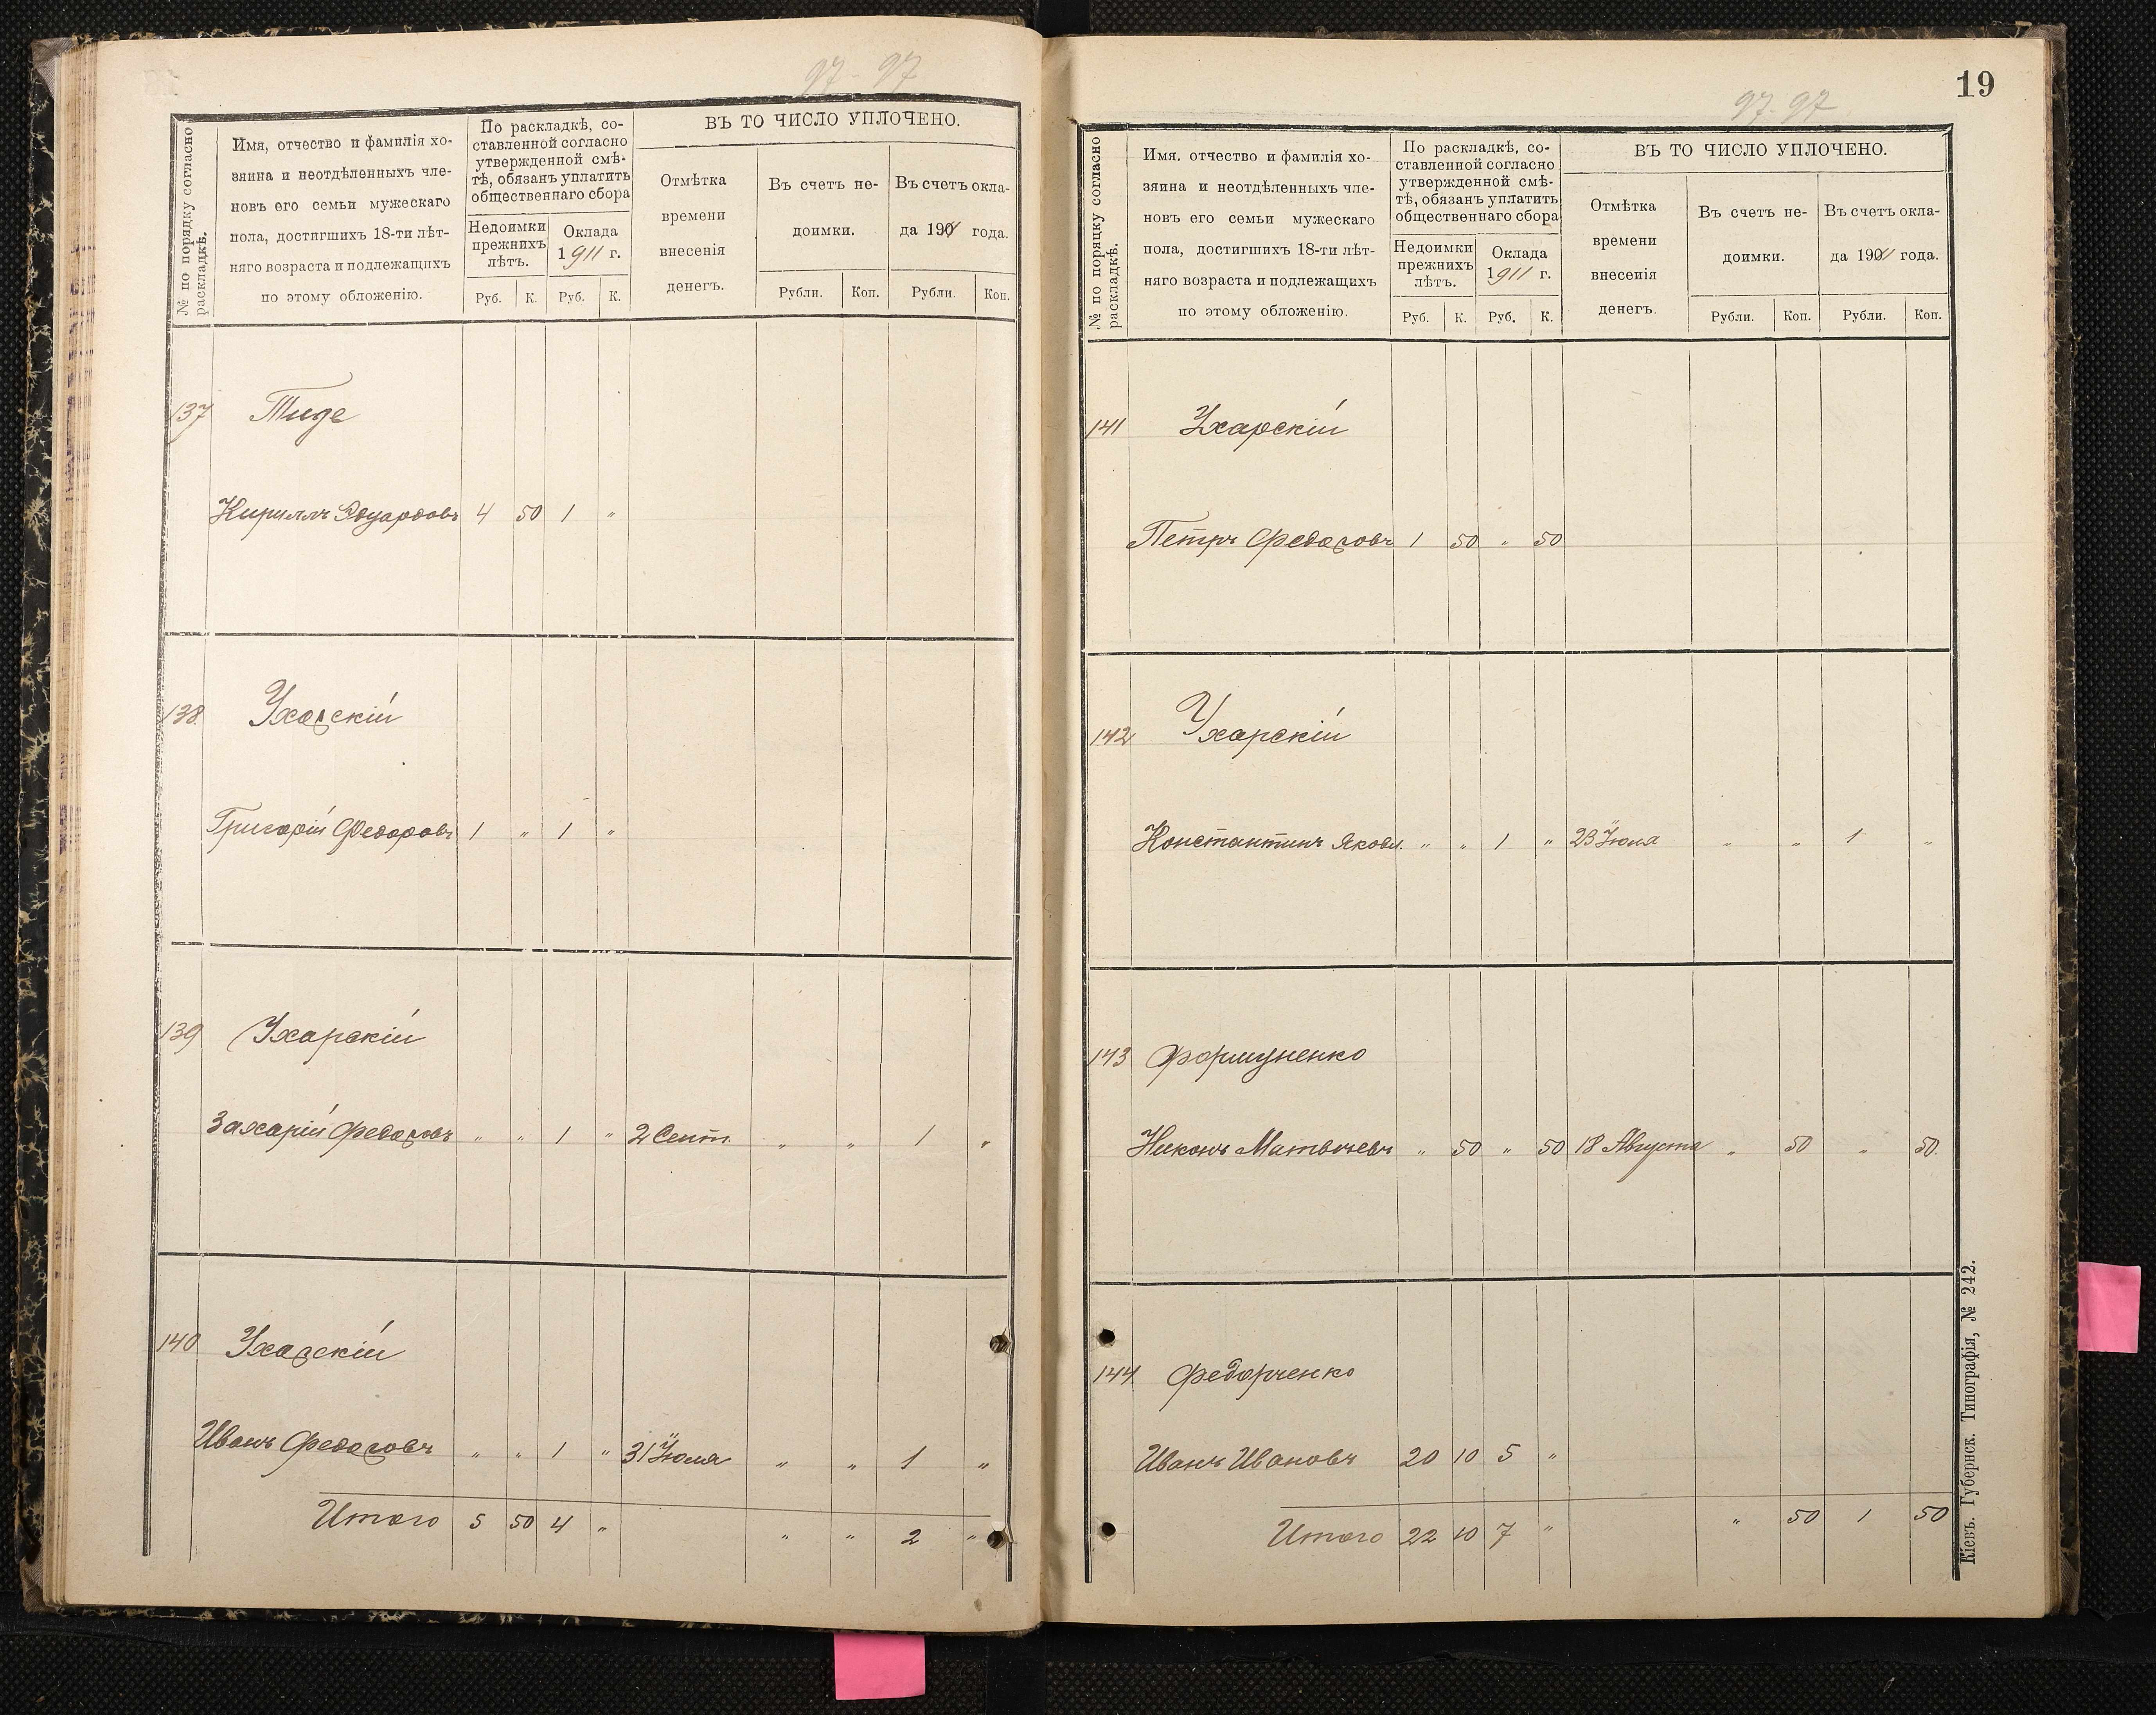 97-97
№ по порядку согласно раскладкѣ.
Имя, отчество и фамилія хо-
зяина и неотдѣленныхъ чле-
новъ его семьи мужескаго
пола, достигшихъ 18-ти лѣт-
няго возраста и подлежащихъ
по этому обложенію.
По раскладкѣ, со-
ставленной согласно
утвержденной смѣ-
тѣ, обязанъ уплатить
общественнаго сбора
Недоимки
прежнихъ
лѣтъ.
Оклада
1911 г.
Руб. К. Руб. К.
ВЪ ТО ЧИСЛО УПЛОЧЕНО.
Отмѣтка
времени
внесенія
денегъ.
Въ счетъ не-
доимки.
Въ счетъ окла-
да 1911 года.
Рубли. Коп. Рубли. Коп.
137 Тиде
Кириллъ Эдуардовъ 4 50 1 "
138 Ухарскій
Григорій Федоровъ 1 " 1 "
139 Ухарскій
Захарій Федоровъ " " 1 " 2 Сент. " " 1 "
140 Ухарскій
Иванъ Федоровъ " " 1 " 31 Іюля " " 1 "
Итого 5 50 4 " " " 2 "
19
97-97
№ по поряцку согласно раскладкѣ.
Имя. отчество и фамилія хо-
зяина и неотдѣленныхъ чле-
новъ его семьи мужескаго
пола, достигшихъ 18-ти лѣт-
няго возраста и подлежащихъ
по этому обложенію.
По раскладкѣ, со-
ставленной согласно
утвержденной смѣ-
тѣ, обязанъ уплатить
общественнаго сбора
Недоимки
прежнихъ
лѣтъ.
Оклада
1911 г.
Руб. К. Руб. К.
ВЪ ТО ЧИСЛО УПЛОЧЕНО.
Отмѣтка
времени
внесенія
денегъ.
Въ счетъ не-
доимки.
Въ счетъ окла-
да 1911 года.
Рубли. Коп. Рубли. Коп.
141 Ухарскій
Петръ Федоровъ 1 50 " 50
142 Ухарскій
Константинъ Яковл. " " 1 " 23 Іюня " " 1 "
143 Фортуненко
Никонъ Матвѣевъ " 50 " 50 18 Августа " 50 " 50.
144 Федорченко
Иванъ Ивановъ 20 10 5 "
Итого 22 10 7 " " 50 1 50
Кіевъ. Губернск. Типографія, № 242.